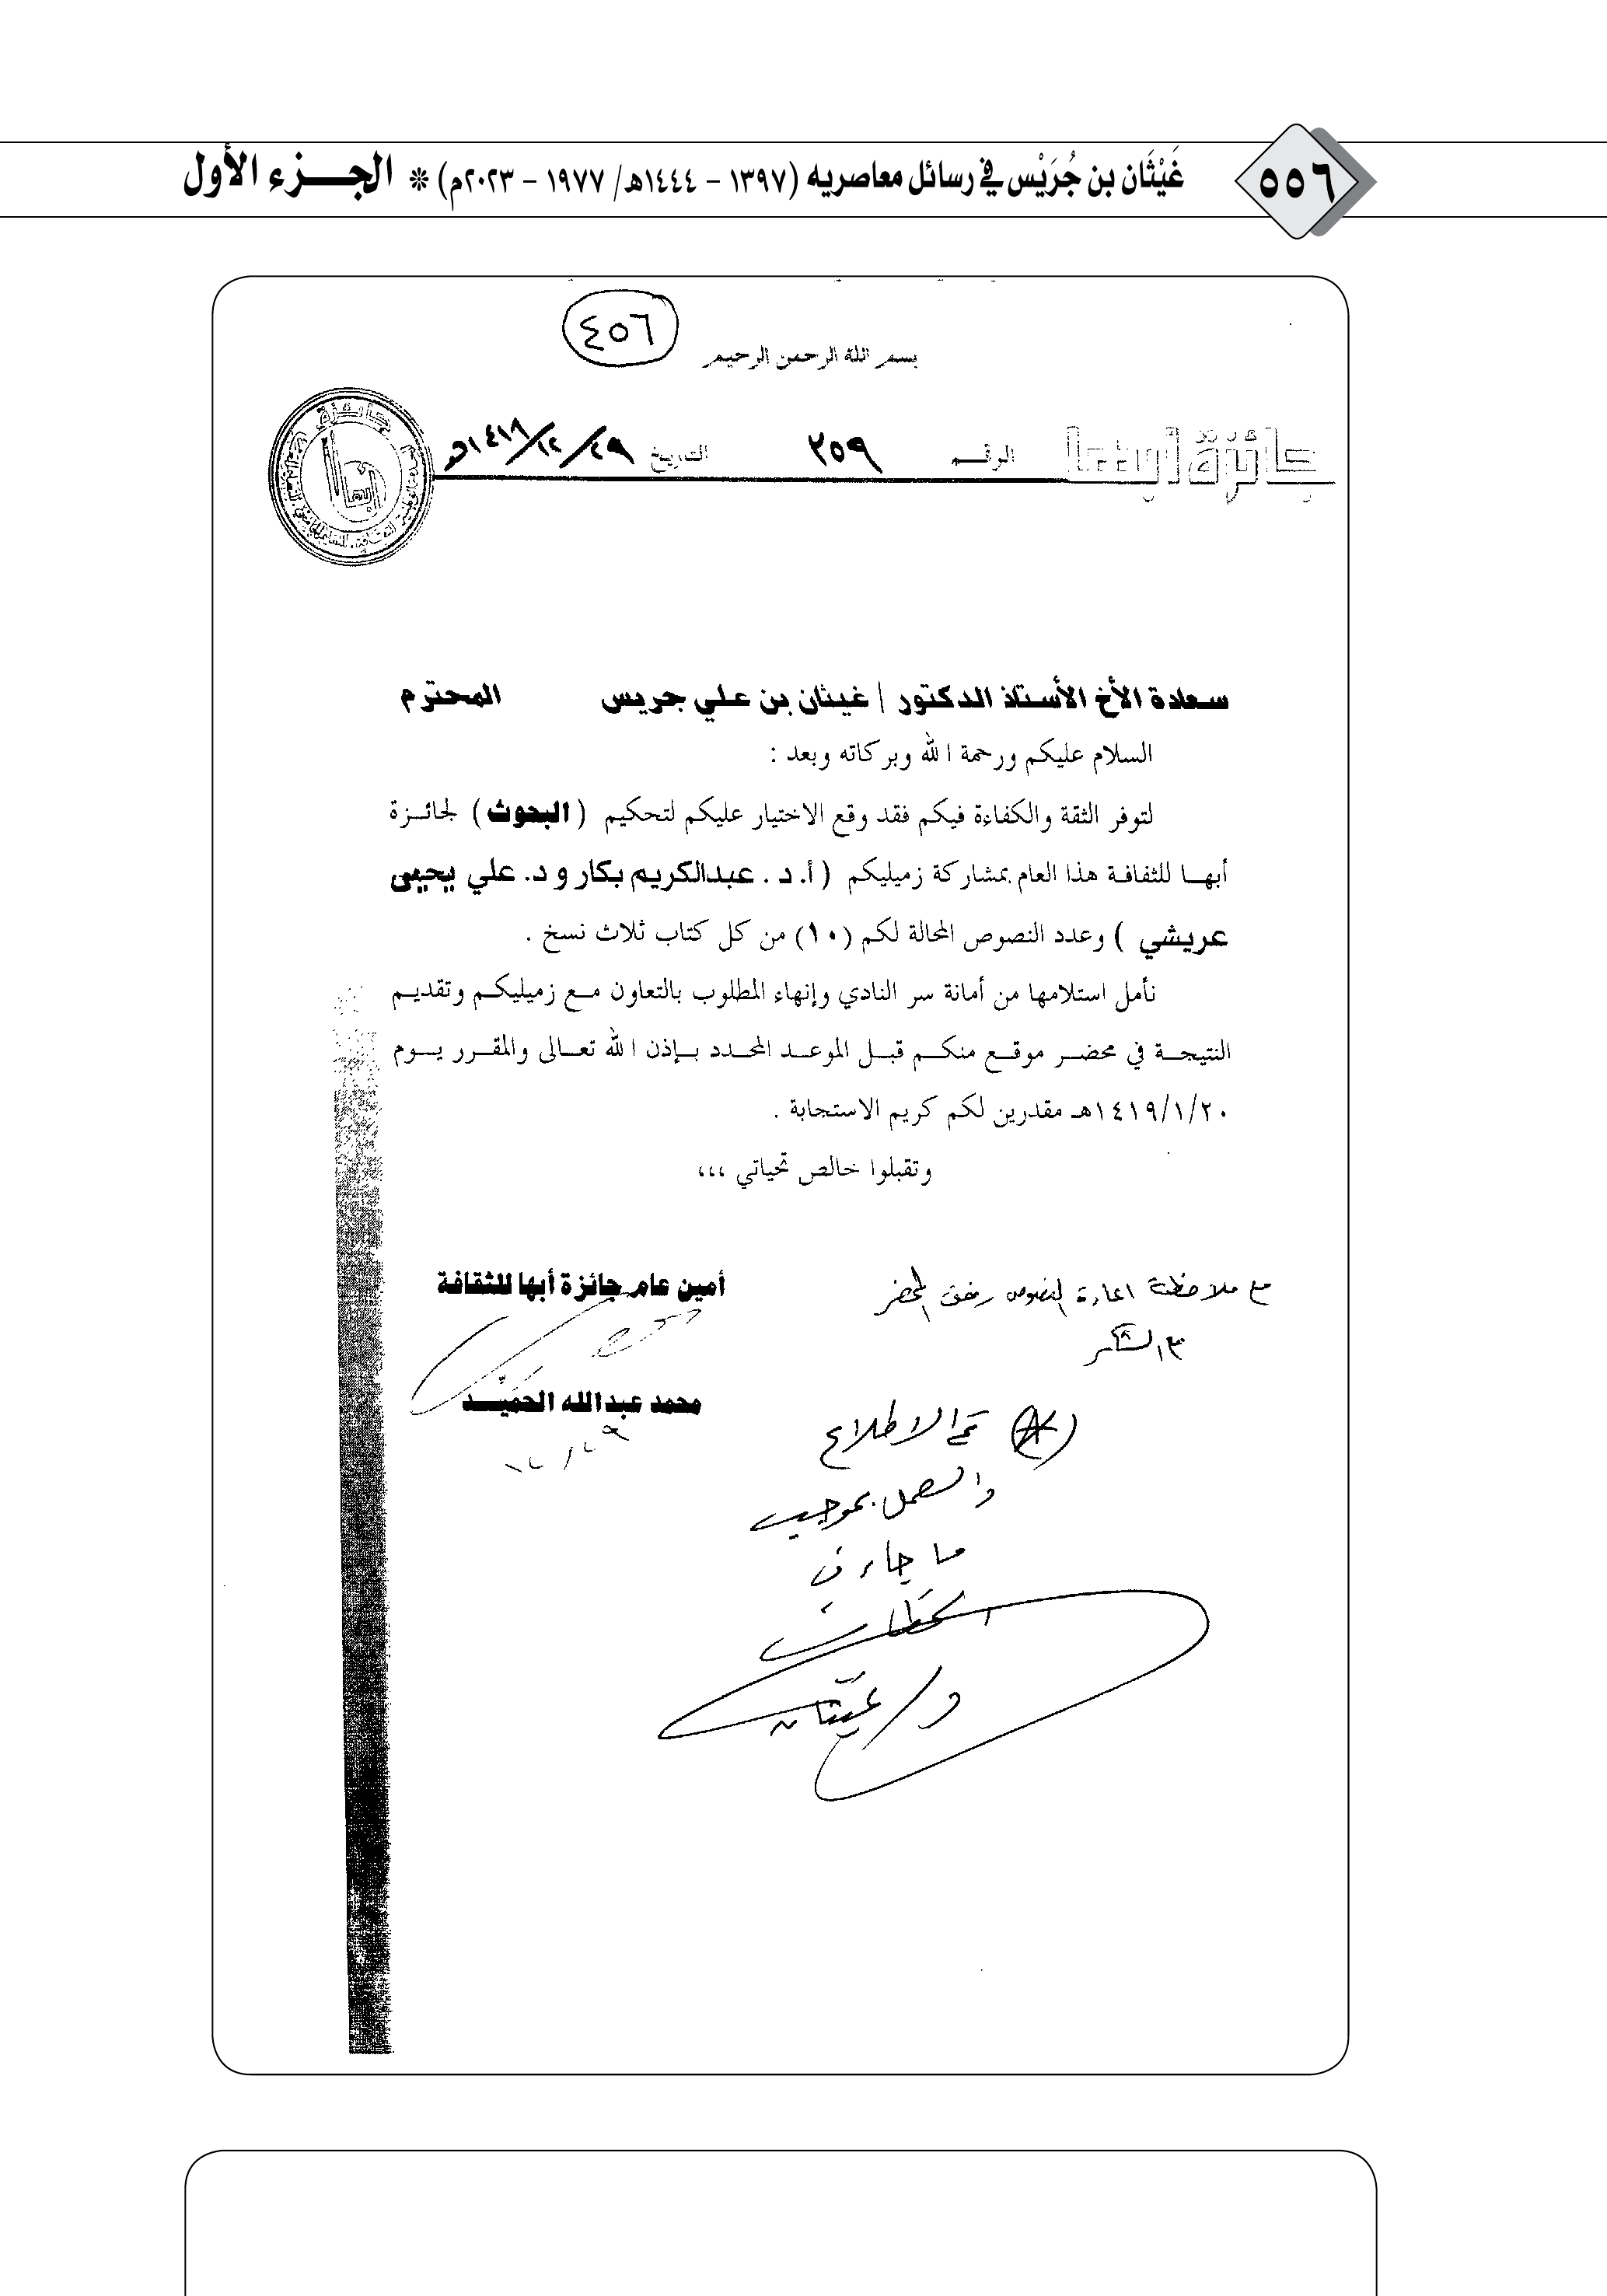 ٥٥٦
غَيْثَان بن جُرَيْس في رسائل معاصريه (١٣٩٧ - ١٤٤٤هـ/ ١٩٧٧ - ٢٠٢٣م) * الجـــزء الأول
٤٥٦
بسم الله الرحمن الرحيم
جائزة أبها الرقـم ٢٥٩ التاريخ ٢٩/١٢/١٤١٨هـ
جائزة
أبها
سعادة الأخ الأستاذ الدكتور / غيثان بن علي جريس المحترم
السلام عليكم ورحمة الله وبركاته وبعد :
لتوفر الثقة والكفاءة فيكم فقد وقع الاختيار عليكم لتحكيم ( البحوث ) لجائـزة
أبهـا للثقافة هذا العام بمشاركة زميليكم ( أ. د . عبدالكريم بكار و د. علي يحيى
عريشي ) وعدد النصوص المحالة لكم (١٠) من كل كتاب ثلاث نسخ .
نأمل استلامها من أمانة سر النادي وإنهاء المطلوب بالتعاون مـع زميليكـم وتقديـم
النتيجـة في محضـر موقـع منكـم قبـل الموعـد المحـدد بـإذن الله تعـالى والمقـرر يـوم
١٤١٩/١/٢٠هـ مقدرين لكم كريم الاستجابة .
وتقبلوا خالص تحياتي ،،،
أمين عام جائزة أبها للثقافة
محمد عبدالله الحميّـد
٢٩/١٢
مع ملاحظة اعادة النصوص رفق المحضر
مع الشكر
تم الاطلاع
والعمل بموجب
ما جاء في
الخطاب
د/ غيثان